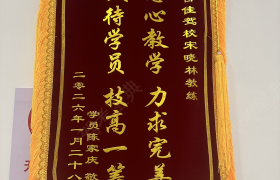 佳驾校宋晓林教练
心教学 力求完美
待学员 技高一筹
学员陈家庆 敬
二零二六年一月二十八